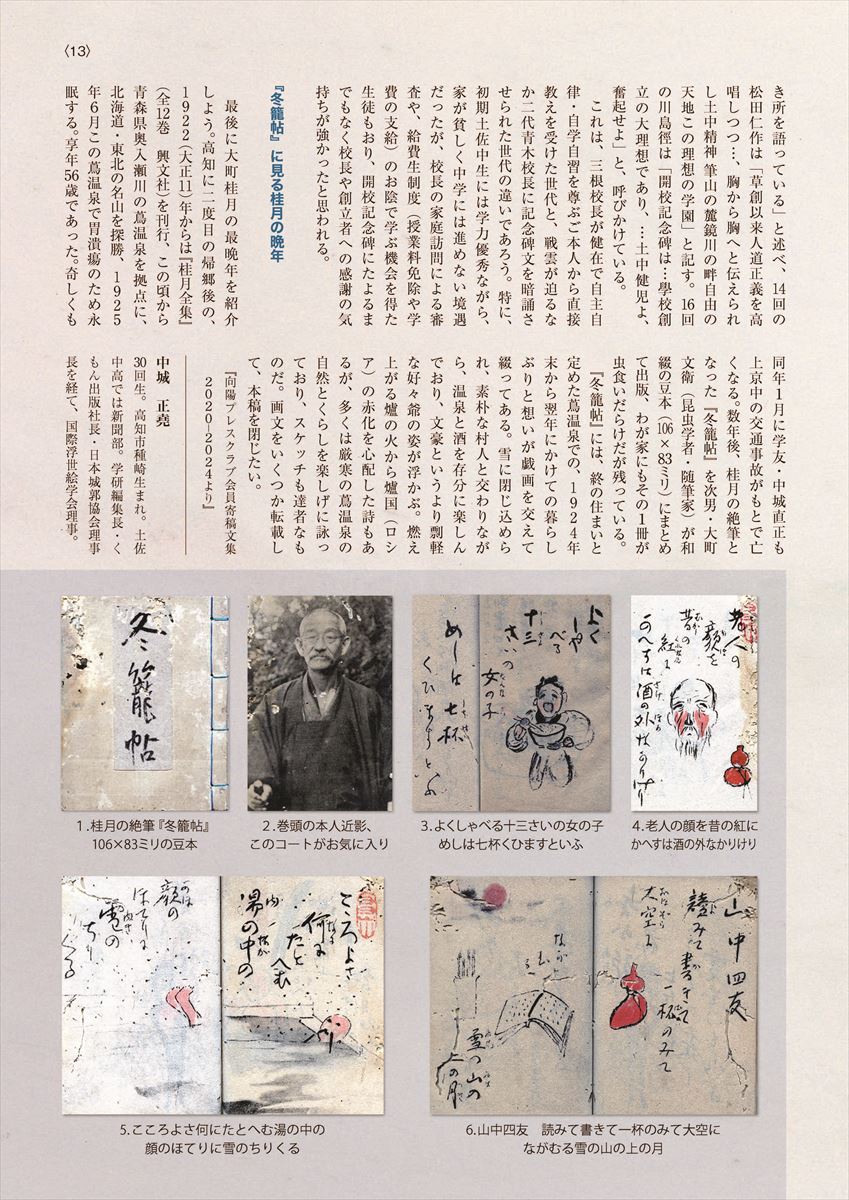 〈13〉
き所を語っている」と述べ、14回の
松田仁作は「草創以来人道正義を高
唱しつつ…、胸から胸へと伝えられ
し土中精神筆山の麓鏡川の畔自由の
天地この理想の学園」と記す。16回
の川島徑は「開校記念碑は…學校創
立の大理想であり、…土中健児よ、
奮起せよ」と、呼びかけている。
これは、三根校長が健在で自主自
律・自学自習を尊ぶご本人から直接
教えを受けた世代と、戦雲が迫るな
か二代青木校長に記念碑文を暗誦さ
せられた世代の違いであろう。特に、
初期土佐中生には学力優秀ながら、
家が貧しく中学には進めない境遇
だったが、校長の家庭訪問による審
査や、給費生制度（授業料免除や学
費の支給）のお陰で学ぶ機会を得た
生徒もおり、開校記念碑にたよるま
でもなく校長や創立者への感謝の気
持ちが強かったと思われる。
『冬籠帖』に見る桂月の晩年
最後に大町桂月の最晩年を紹介
しよう。高知に二度目の帰郷後の、
1922（大正11）年からは『桂月全集』
（全12巻　興文社）を刊行、この頃から
青森県奥入瀬川の蔦温泉を拠点に、
北海道・東北の名山を探勝、1925
年6月この蔦温泉で胃潰瘍のため永
眠する。享年56歳であった。奇しくも
同年1月に学友・中城直正も
上京中の交通事故がもとで亡
くなる。数年後、桂月の絶筆と
なった『冬籠帖』を次男・大町
文衛（昆虫学者・随筆家）が和
綴の豆本（106×83ミリ）にまとめ
て出版、わが家にもその1冊が
虫食いだらけだが残っている。
『冬籠帖』には、終の住まいと
定めた蔦温泉での、1924年
末から翌年にかけての暮らし
ぶりと想いが戯画を交えて
綴ってある。雪に閉じ込めら
れ、素朴な村人と交わりなが
ら、温泉と酒を存分に楽しん
でおり、文豪というより剽軽
な好々爺の姿が浮かぶ。燃え
上がる爐の火から爐国（ロシ
ア）の赤化を心配した詩もあ
るが、多くは厳寒の蔦温泉の
自然とくらしを楽しげに詠っ
ており、スケッチも達者なも
のだ。画文をいくつか転載し
て、本稿を閉じたい。
『向陽プレスクラブ会員寄稿文集
2020―2024より』
中城　正堯
30回生。高知市種崎生まれ。土佐
中高では新聞部。学研編集長・く
もん出版社長・日本城郭協会理事
長を経て、国際浮世絵学会理事。
冬籠帖
1.桂月の絶筆『冬籠帖』
106×83ミリの豆本
2.巻頭の本人近影、
このコートがお気に入り
よく
しやべる
十三
さいの
女の子
めしは七杯
くひますといふ
3.よくしゃべる十三さいの女の子
めしは七杯くひますといふ
老人の
顔を
昔の
紅に
かへすは酒の外なかりけり
4.老人の顔を昔の紅に
かへすは酒の外なかりけり
こころよさ
何に
たとへむ
湯の中の
顔の
ほてりに
雪の
ちり
くる
5.こころよさ何にたとへむ湯の中の
顔のほてりに雪のちりくる
山中四友
読みて書きて
一杯のみて
大空に
ながむる
雪の山の
上の月
6.山中四友　読みて書きて一杯のみて大空に
ながむる雪の山の上の月